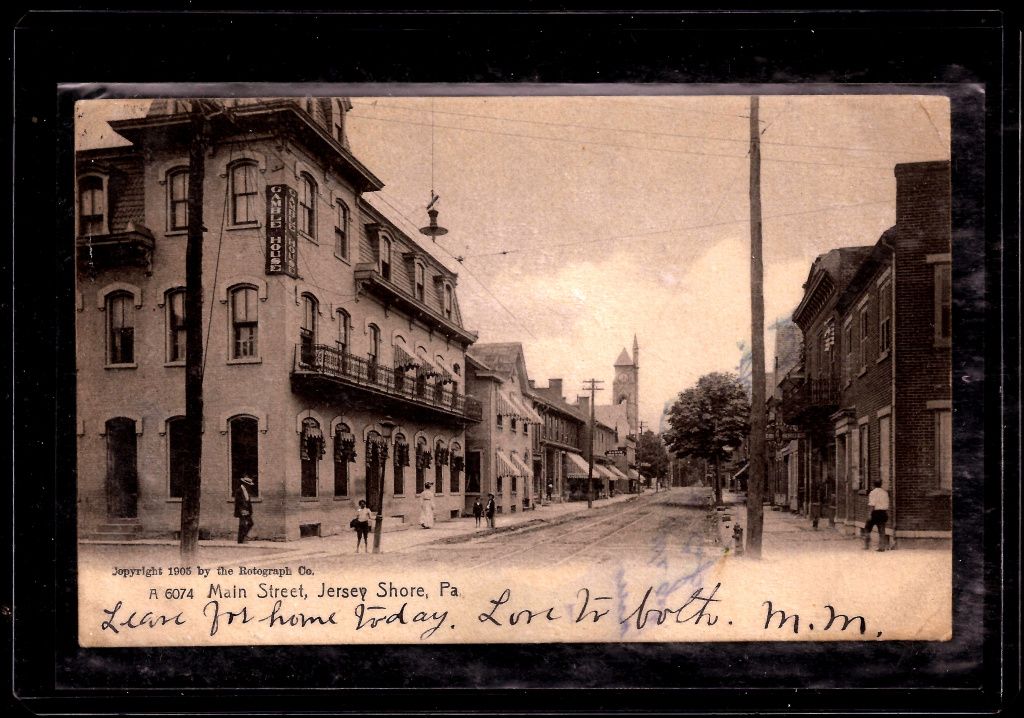 GAMBLE HOUSE
GAMBLE HOUSE
Copyright 1905 by the Rotograph Co.
A 6074 Main Street, Jersey Shore, Pa
Leave for home today. Love to both. M.M.